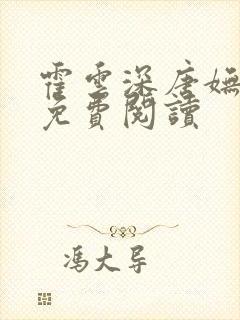 霍雲深唐嫵
免費閱讀
馮大导